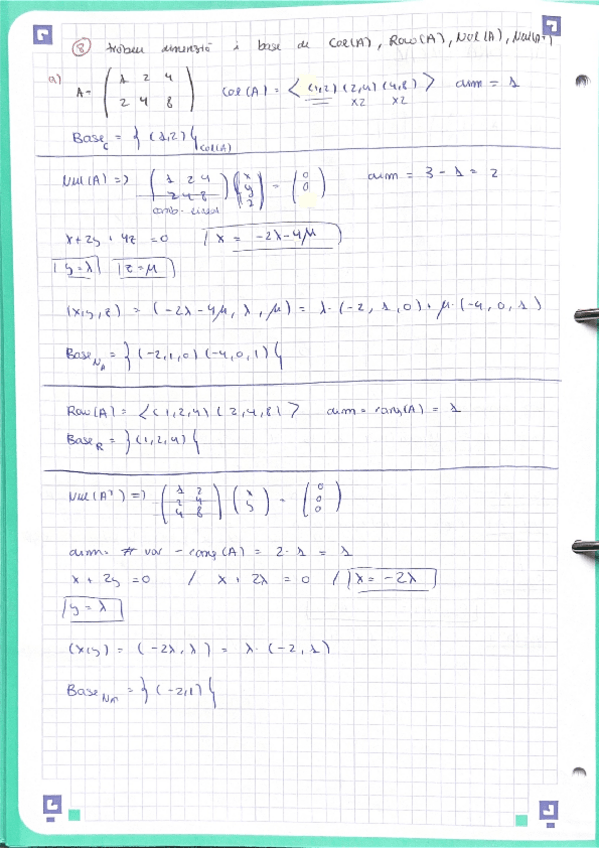 8 trobeu dimensió i base de Col(A), Row(A), Nul(A), Nul(Aᵀ)
a) A = ( 1 2 4 / 2 4 8 ) Col(A) = < (1,2) (2,4) (4,8) > dim = 1
x2 x2
Base_C = { (1,2) }_Col(A)
Nul(A) => ( 1 2 4 / 2 4 8 ) ( x y z ) = ( 0 0 ) dim = 3 - 1 = 2
comb. lineal
x + 2y + 4z = 0 / x = -2λ - 4μ
y = λ z = μ
(x,y,z) = (-2λ-4μ, λ, μ) = λ·(-2,1,0) + μ·(-4,0,1)
Base_N_A = { (-2,1,0) (-4,0,1) }
Row(A) = < (1,2,4) (2,4,8) > dim = rang(A) = 1
Base_R = { (1,2,4) }
Nul(Aᵀ) => ( 1 2 / 2 4 / 4 8 ) ( x y ) = ( 0 0 0 )
dim = # var - rang(A) = 2 - 1 = 1
x + 2y = 0 / x + 2λ = 0 / x = -2λ
y = λ
(x,y) = (-2λ, λ) = λ·(-2,1)
Base_N_Aᵀ = { (-2,1) }